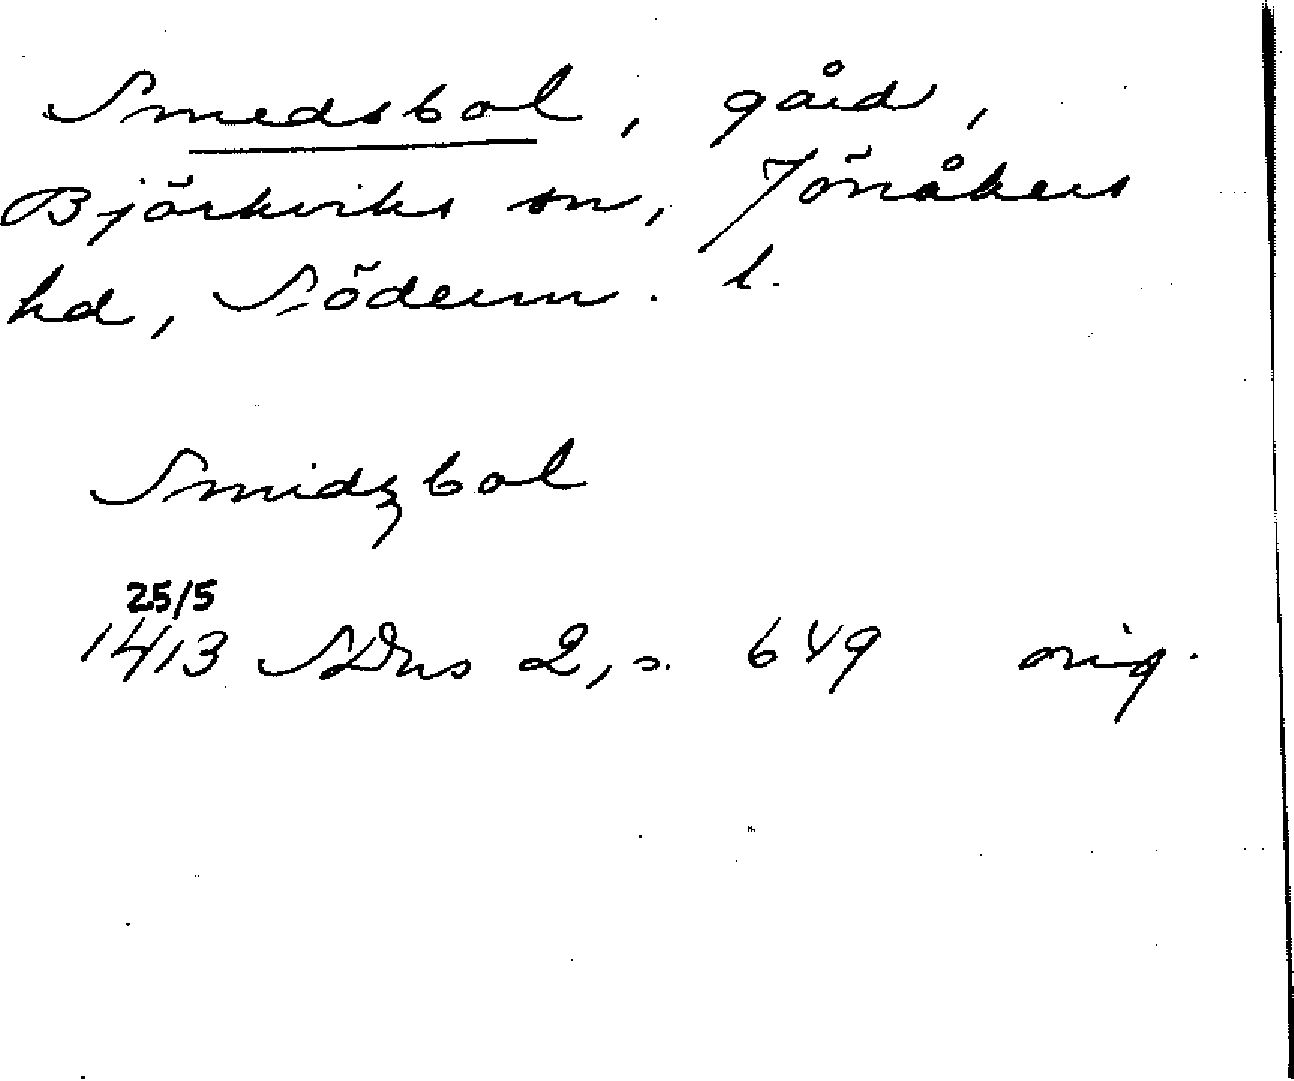 Smedsbol, gård,
Björkviks sn, Jönåkers
hd, Söderm. l.
Smidzbol
25/5
1413 SDns 2, s. 649 orig.